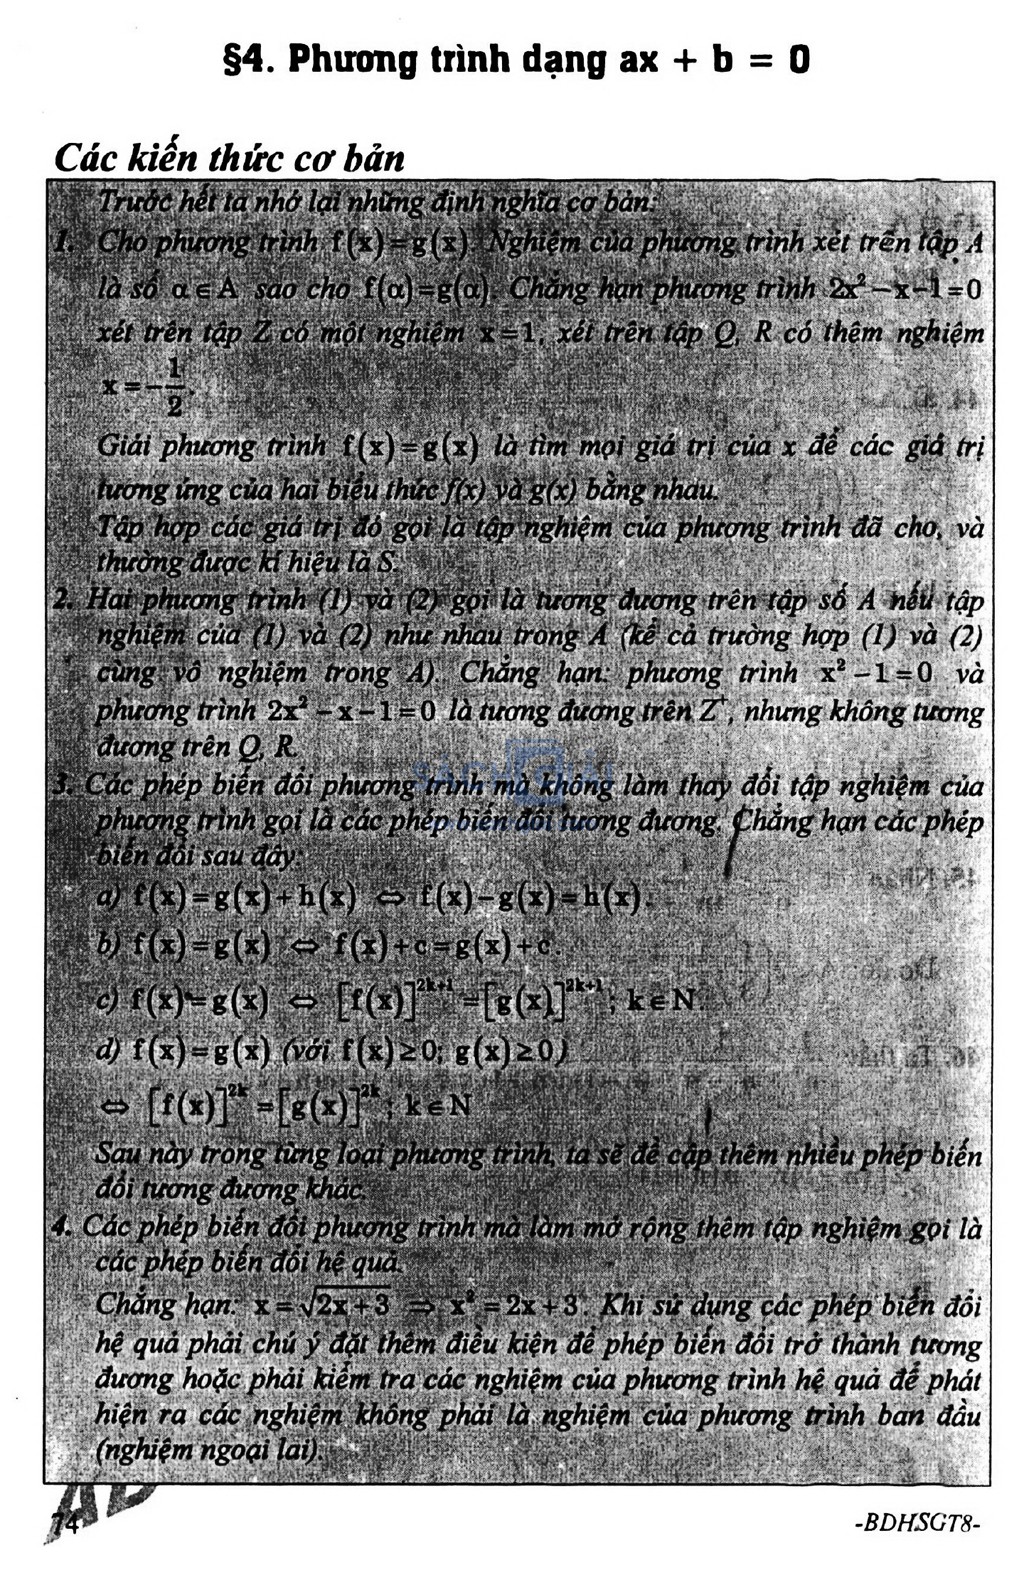 §4. Phương trình dạng ax + b = 0
Các kiến thức cơ bản
Trước hết ta nhớ lại những định nghĩa cơ bản:
1. Cho phương trình f(x)=g(x). Nghiệm của phương trình xét trên tập A
là số α∈A sao cho f(α)=g(α). Chẳng hạn phương trình 2x²−x−1=0
xét trên tập Z có một nghiệm x=1, xét trên tập Q, R có thêm nghiệm
x=−1/2.
Giải phương trình f(x)=g(x) là tìm mọi giá trị của x để các giá trị
tương ứng của hai biểu thức f(x) và g(x) bằng nhau.
Tập hợp các giá trị đó gọi là tập nghiệm của phương trình đã cho, và
thường được kí hiệu là S.
2. Hai phương trình (1) và (2) gọi là tương đương trên tập số A nếu tập
nghiệm của (1) và (2) như nhau trong A (kể cả trường hợp (1) và (2)
cùng vô nghiệm trong A). Chẳng hạn: phương trình x²−1=0 và
phương trình 2x²−x−1=0 là tương đương trên Z⁺, nhưng không tương
đương trên Q, R.
SÁCH GIẢI
3. Các phép biến đổi phương trình mà không làm thay đổi tập nghiệm của
phương trình gọi là các phép biến đổi tương đương. Chẳng hạn các phép
biến đổi sau đây:
a) f(x)=g(x)+h(x) ⇔ f(x)−g(x)=h(x).
b) f(x)=g(x) ⇔ f(x)+c=g(x)+c.
c) f(x)=g(x) ⇔ [f(x)]²ᵏ⁺¹=[g(x)]²ᵏ⁺¹; k∈N.
d) f(x)=g(x) (với f(x)≥0; g(x)≥0)
⇔ [f(x)]²ᵏ=[g(x)]²ᵏ; k∈N
Sau này trong từng loại phương trình, ta sẽ đề cập thêm nhiều phép biến
đổi tương đương khác.
4. Các phép biến đổi phương trình mà làm mở rộng thêm tập nghiệm gọi là
các phép biến đổi hệ quả.
Chẳng hạn: x=√(2x+3) ⇒ x²=2x+3. Khi sử dụng các phép biến đổi
hệ quả phải chú ý đặt thêm điều kiện để phép biến đổi trở thành tương
đương hoặc phải kiểm tra các nghiệm của phương trình hệ quả để phát
hiện ra các nghiệm không phải là nghiệm của phương trình ban đầu
(nghiệm ngoại lai).
74
-BDHSGT8-